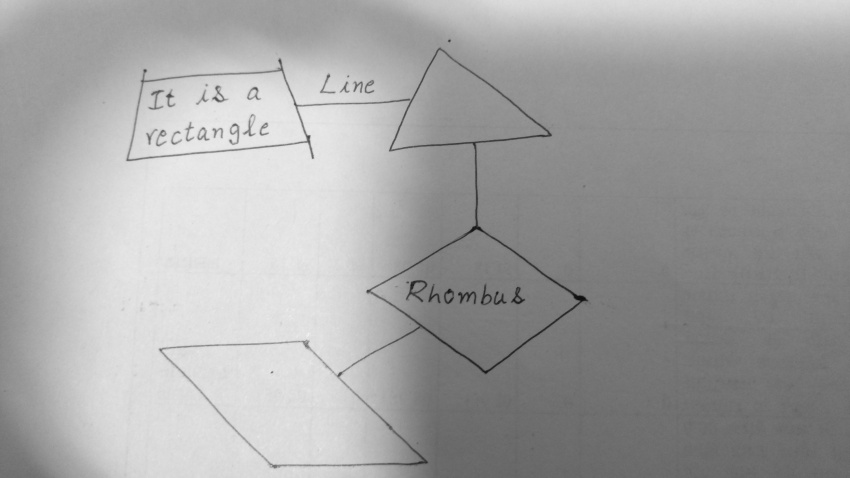 It is a
rectangle
Line
Rhombus